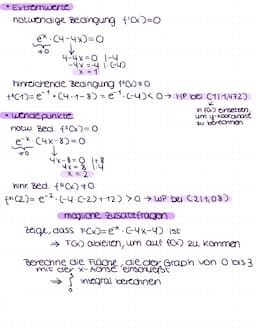 • Extremwerte
notwendige Bedingung f'(x)=0
e^-x · (4-4x)=0
≠0
4-4x=0 |-4
-4x=-4 |:(-4)
x = 1
hinreichende Bedingung f''(x)≠0
f''(1)=e^-1 · (4·1-8)=e^-1·(-4)<0 → HP bei (1|1,472)
in f(x) einsetzen, um y-Koordinate zu berechnen
• Wendepunkte
notw. Bed. f''(x)=0
e^-x · (4x-8)=0
≠0
4x-8=0 |+8
4x = 8 |:4
x = 2
hinr. Bed. f'''(x)≠0
f'''(2)=e^-2·(-4·2+12) >0 → WP bei (2|1,08)
mögliche Zusatzfragen
Zeige, dass F(x)=e^-x·(-4x-4) ist
→ F(x) ableiten, um auf f(x) zu kommen
Berechne die Fläche, die der Graph von 0 bis 3
mit der x-Achse einschließt
→ ∫ Integral berechnen